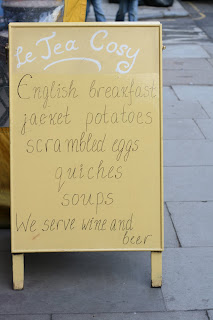 Le Tea Cosy
English breakfast
jacket potatoes
scrambled eggs
quiches
soups
We serve wine and
beer